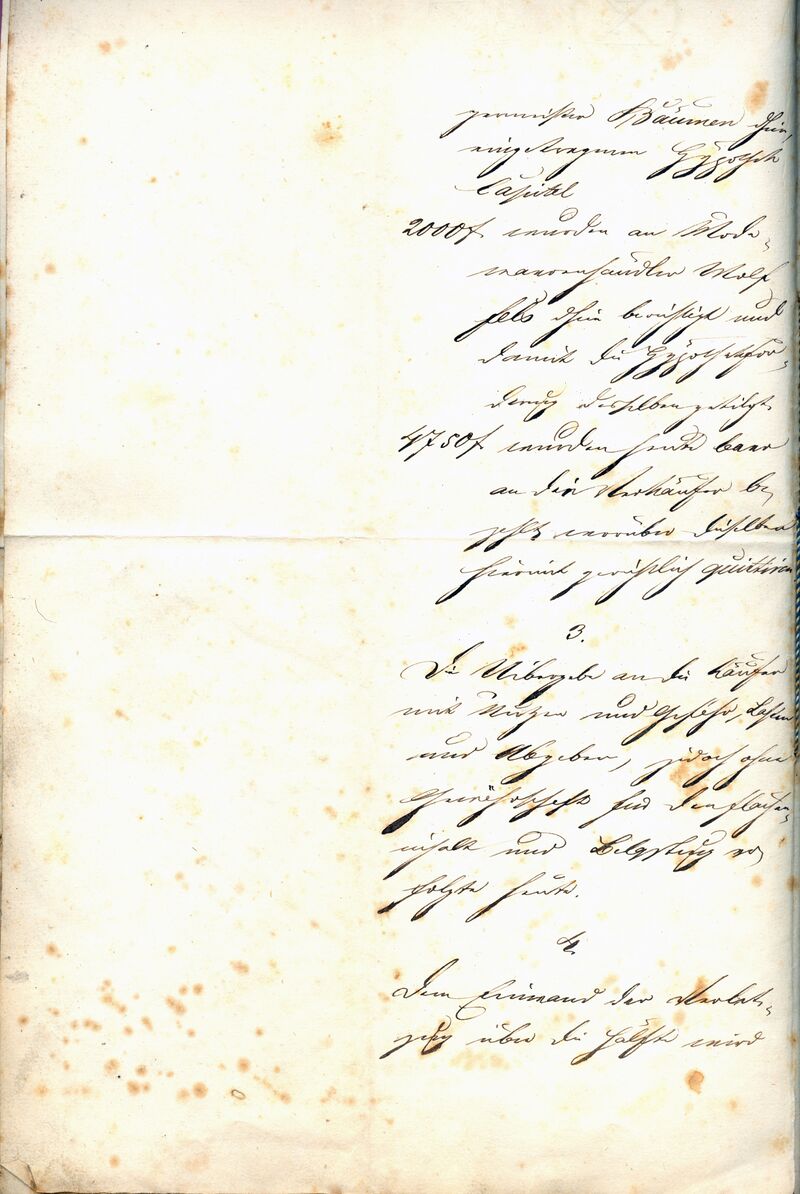 germeister Bäumen dhier,
eingetragenen Hypothek
Capital
2000f wurden an Mode-
waarenhändler Wolf
fels dhier berichtigt und
damit die Hypothekfor-
derung desselben getilgt
4750f wurden heute baar
an die Verkäufer be
zahlt worüber dieselben
hiermit gerichtlich quittiren
3.
Die Uibergabe an die Käufer
mit Nutzen und Gefahr, Lasten
und Abgaben, jedoch ohne
Gewährschaft für den Flächen-
inhalt und Belastung er
folgte heute.
4.
Dem Einwand der Verlet-
zung über die Hälfte wird